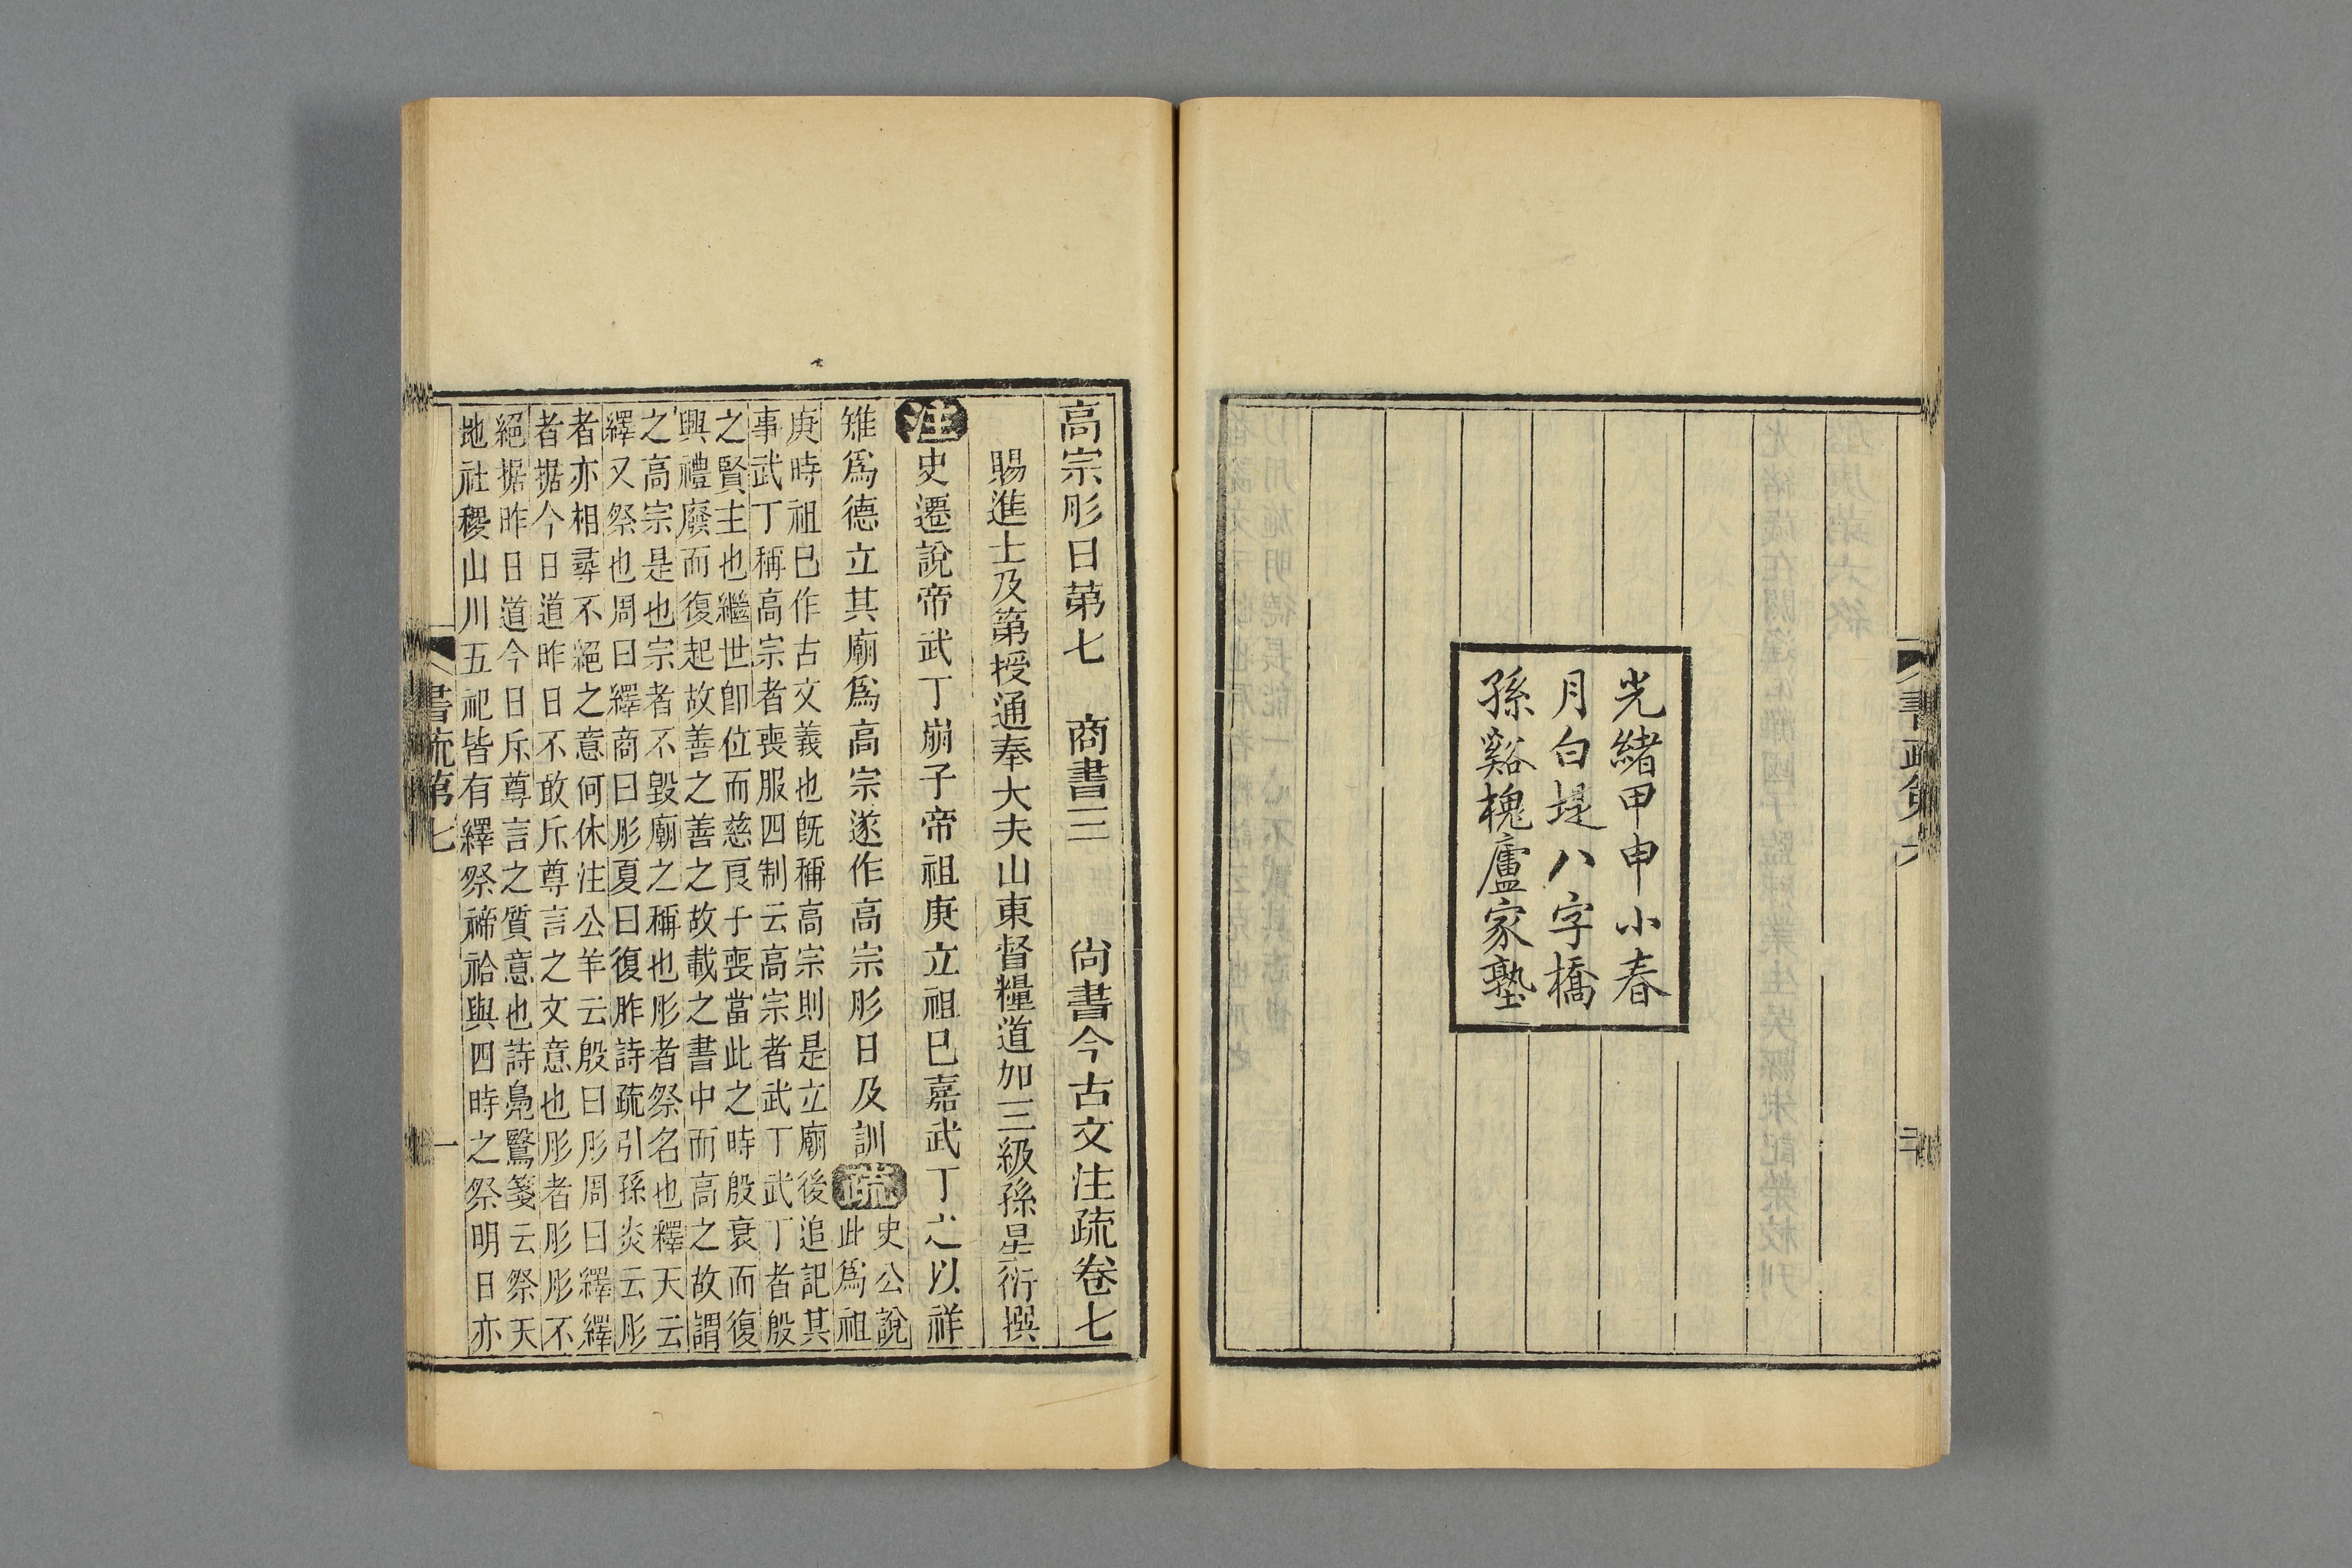 書疏第六
光緒甲申小春
月白堤八字橋
孫谿槐廬家塾
高宗肜日第七　商書三　尙書今古文注疏卷七
賜進士及第授通奉大夫山東督糧道加三級孫星衍撰
注史遷說帝武丁崩子帝祖庚立祖巳嘉武丁之以祥
雉爲德立其廟爲高宗遂作高宗肜日及訓疏史公說
此爲祖
庚時祖巳作古文義也旣稱高宗則是立廟後追記其
事武丁稱高宗者喪服四制云高宗者武丁武丁者殷
之賢主也繼世卽位而慈良于喪當此之時殷衰而復
興禮廢而復起故善之善之故載之書中而高之故謂
之高宗是也宗者不毀廟之稱也肜者祭名也釋天云
繹又祭也周曰繹商曰肜夏曰復胙詩疏引孫炎云肜
者亦相尋不絕之意何休注公羊云殷曰肜周曰繹繹
者据今日道昨日不敢斥尊言之文意也肜者肜肜不
絕据昨日道今日斥尊言之質意也詩鳧鷖箋云祭天
地社稷山川五祀皆有繹祭禘祫與四時之祭明日亦
書疏第七
一